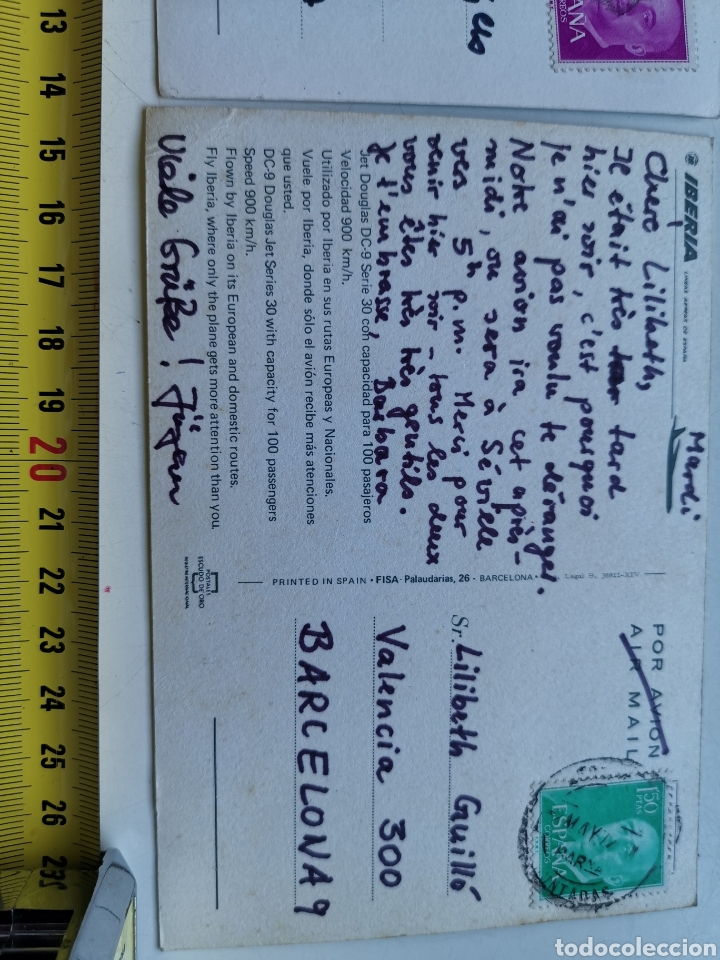 IBERIA
LINEAS AEREAS DE ESPAÑA
Mardi
Chère Lilibeth,
Il était très tard
hier soir, c'est pourquoi
je n'ai pas voulu te déranger.
Notre avion ira cet après-
midi, on sera à Séville
vers 5h p.m. Merci pour
venir hier soir - tous les deux
vous êtes très très gentils.
Je t'embrasse, Barbara
Jet Douglas DC-9 Serie 30 con capacidad para 100 pasajeros
Velocidad 900 km/h.
Utilizado por Iberia en sus rutas Europeas y Nacionales.
Vuele por Iberia, donde sólo el avión recibe más atenciones
que usted.
DC-9 Douglas Jet Series 30 with capacity for 100 passengers
Speed 900 km/h.
Flown by Iberia on its European and domestic routes.
Fly Iberia, where only the plane gets more attention than you.
Viele Grüße! Jürgen
POSTALES
ESCUDO DE ORO
PRINTED IN SPAIN · FISA - Palaudarias, 26 - BARCELONA
POR AVION
AIR MAIL
Sr. Lilibeth Guilló
Valencia 300
BARCELONA 9
1'50
PTAS
ESPAÑA
CORREOS
MAY
ÑA
REOS
13
14
15
16
17
18
19
20
21
22
23
24
25
26
todocoleccion